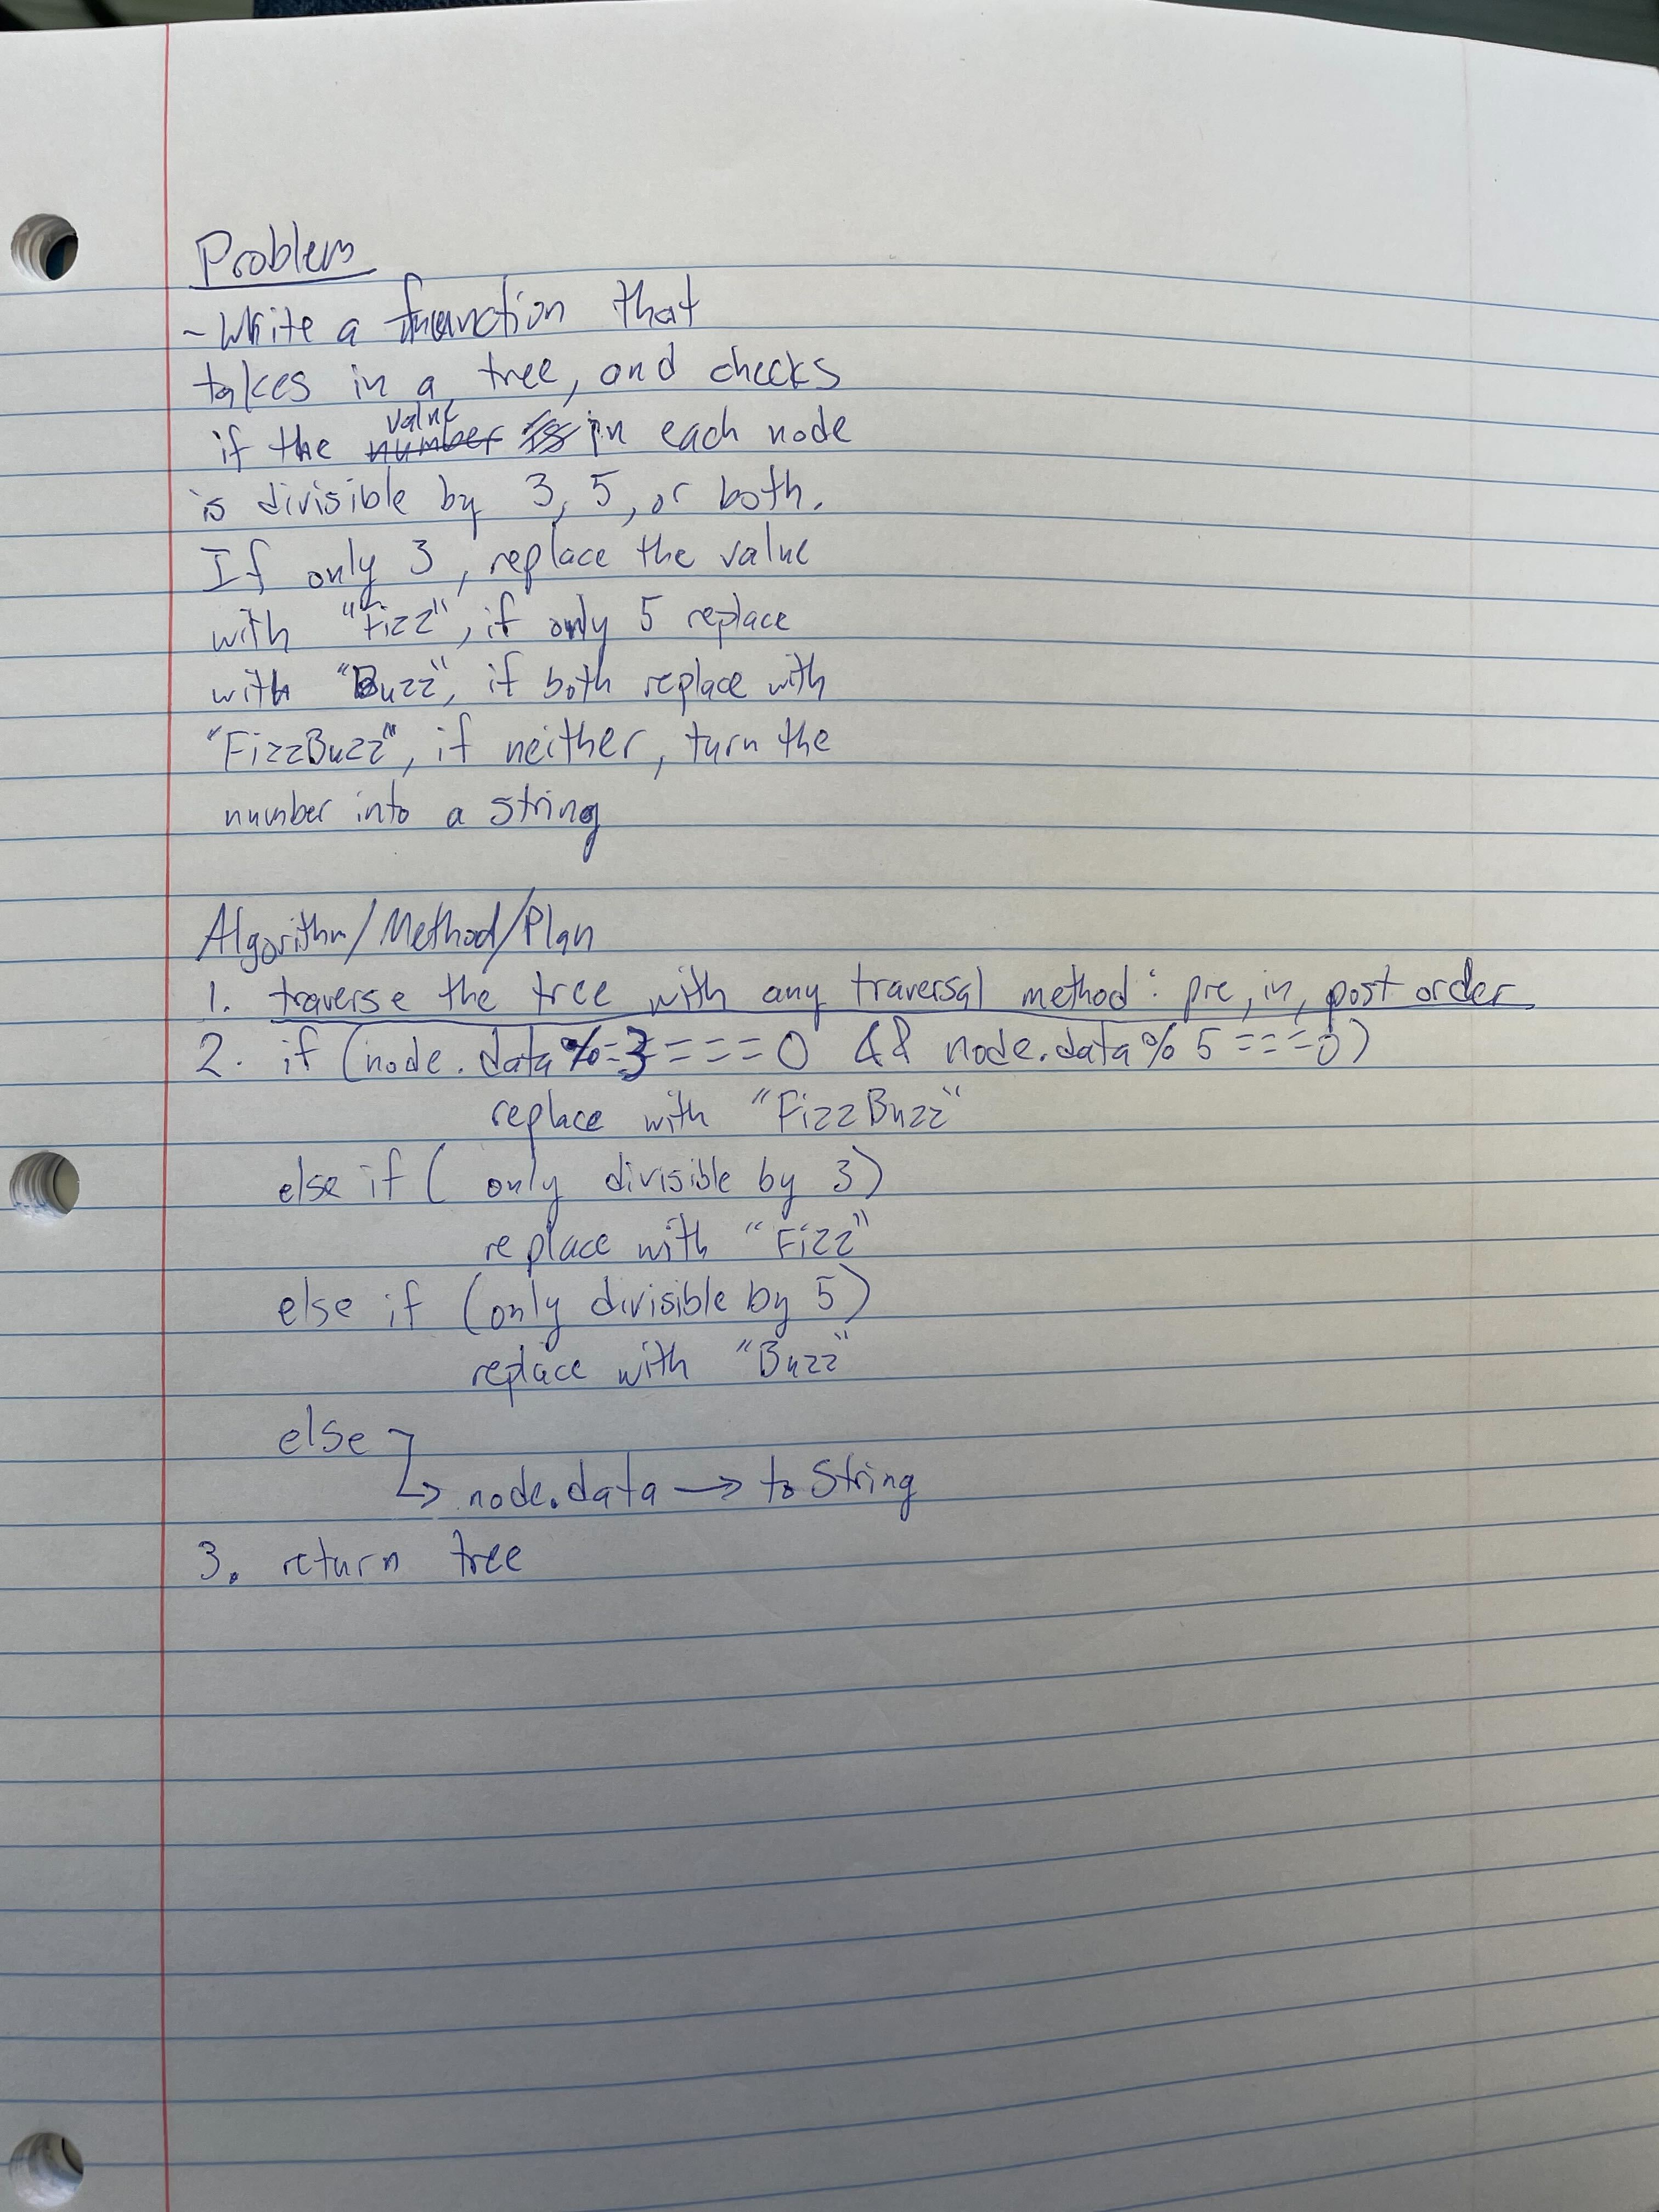 Problem
- Write a function that
takes in a tree, and checks
value
if the number is in each node
is divisible by 3, 5, or both.
If only 3, replace the value
with "Fizz", if only 5 replace
with "Buzz", if both replace with
"FizzBuzz", if neither, turn the
number into a string
Algorithm/Method/Plan
1. traverse the tree with any traversal method: pre, in, post order
2. if (node.data % 3 === 0 && node.data % 5 === 0)
replace with "FizzBuzz"
else if ( only divisible by 3)
replace with "Fizz"
else if (only divisible by 5)
replace with "Buzz"
else
↳ node.data → to String
3. return tree